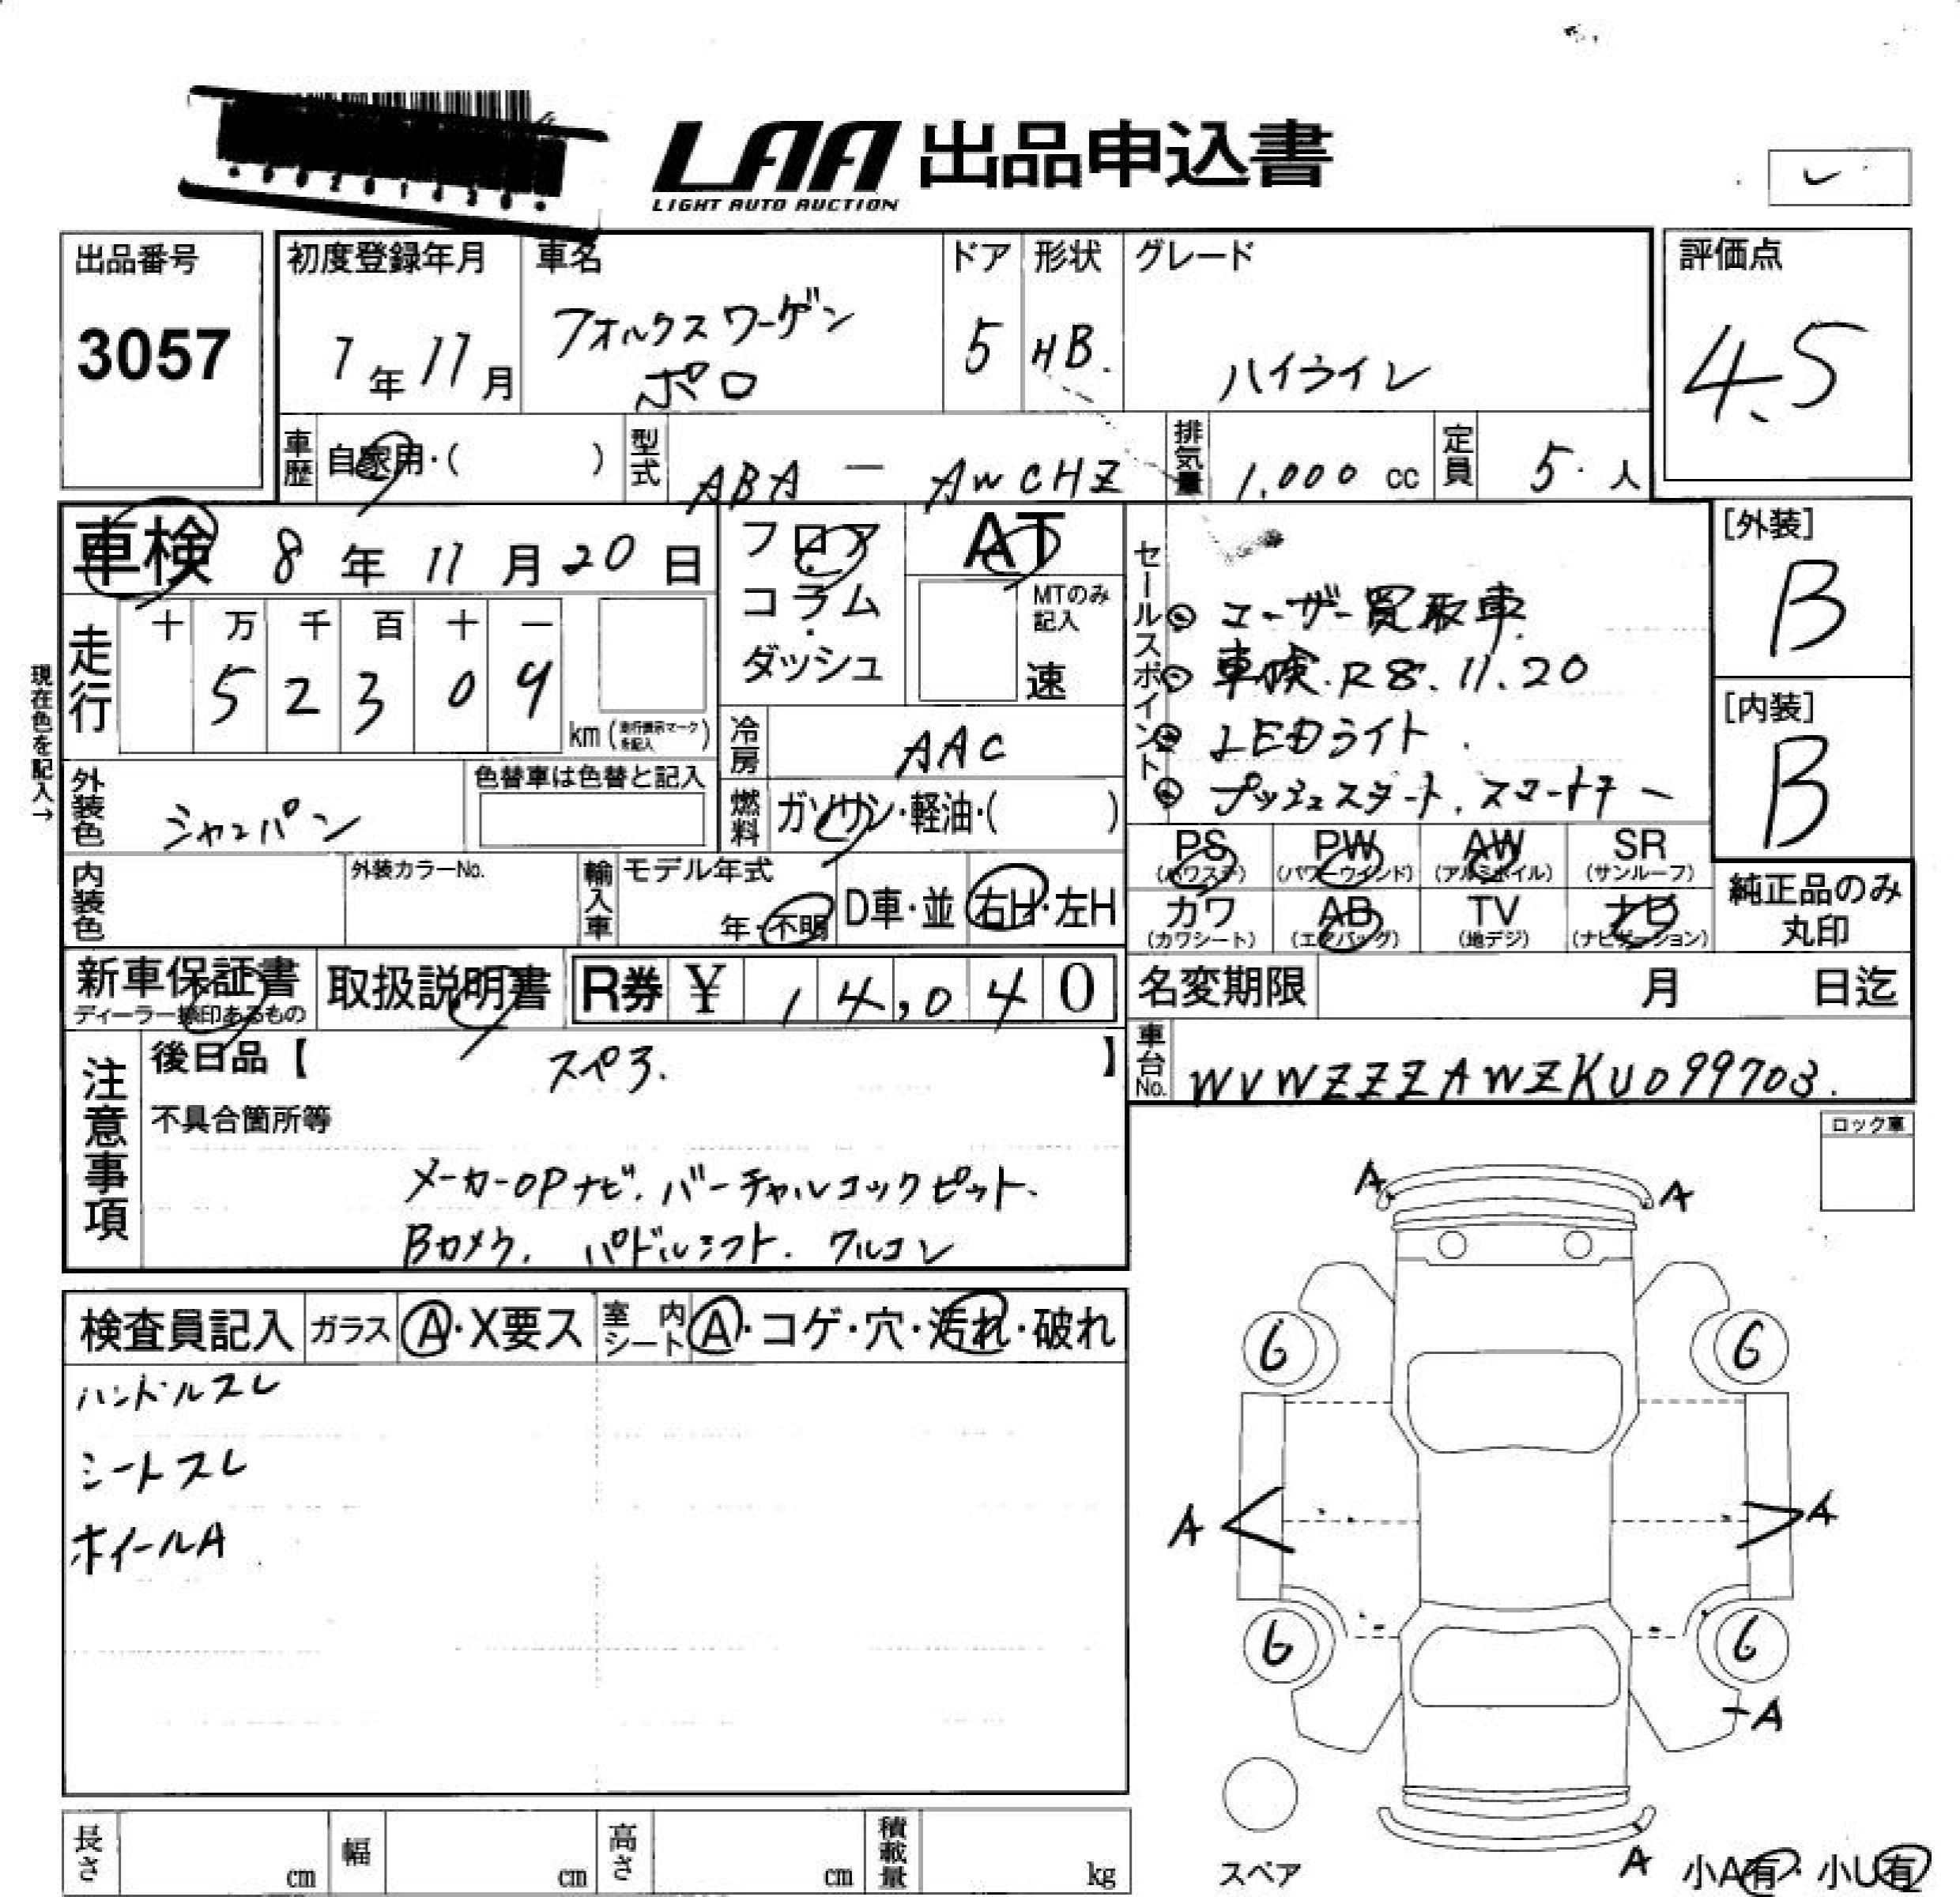 LAA 出品申込書
LIGHT AUTO AUCTION
出品番号
3057
初度登録年月
1年11月
車名
フォルクスワーゲン
ポロ
ドア
5
形状
HB.
グレード
ハイライン
評価点
4.5
車歴
自家用・( )
型式
ABA - AWCHZ
排気量
1.000 cc
定員
5. 人
車検 8年11月20日
フロア
・
コラム
・
ダッシュ
AT
MTのみ
記入
速
セールスポイント
ユーザー買取車
車検.R8.11.20
LEDライト
プッシュスタート.スマートキー
[外装]
B
[内装]
B
現在色を記入→
走行
十 万 千 百 十 一
5 2 3 0 9
km( 走行表示マークを記入 )
冷房
AAC
外装色
シャンパン
色替車は色替と記入
燃料
ガソリン・軽油・( )
内装色
外装カラーNo.
輸入車
モデル年式
年・不明
D車・並
右H・左H
PS
(パワステ)
PW
(パワーウインド)
AW
(アルミホイル)
SR
(サンルーフ)
カワ
(カワシート)
AB
(エアバッグ)
TV
(地デジ)
ナビ
(ナビゲーション)
純正品のみ
丸印
新車保証書
ディーラー捺印あるもの
取扱説明書
R券 ¥ 14,040
名変期限 月 日迄
車台No.
WVWZZZAWZKU099703.
注意事項
後日品【 スペ3. 】
不具合箇所等
メーカーOPナビ.バーチャルコックピット.
Bカメラ. パドルシフト. クルコン
ロック車
検査員記入
ガラス
A・X要ス
室内シート
A・コゲ・穴・汚れ・破れ
ハンドルスレ
シートスレ
ホイールA
A A
6 6
A A
6 6
A
スペア
A
小A有・小U有
長さ cm
幅 cm
高さ cm
積載量 kg